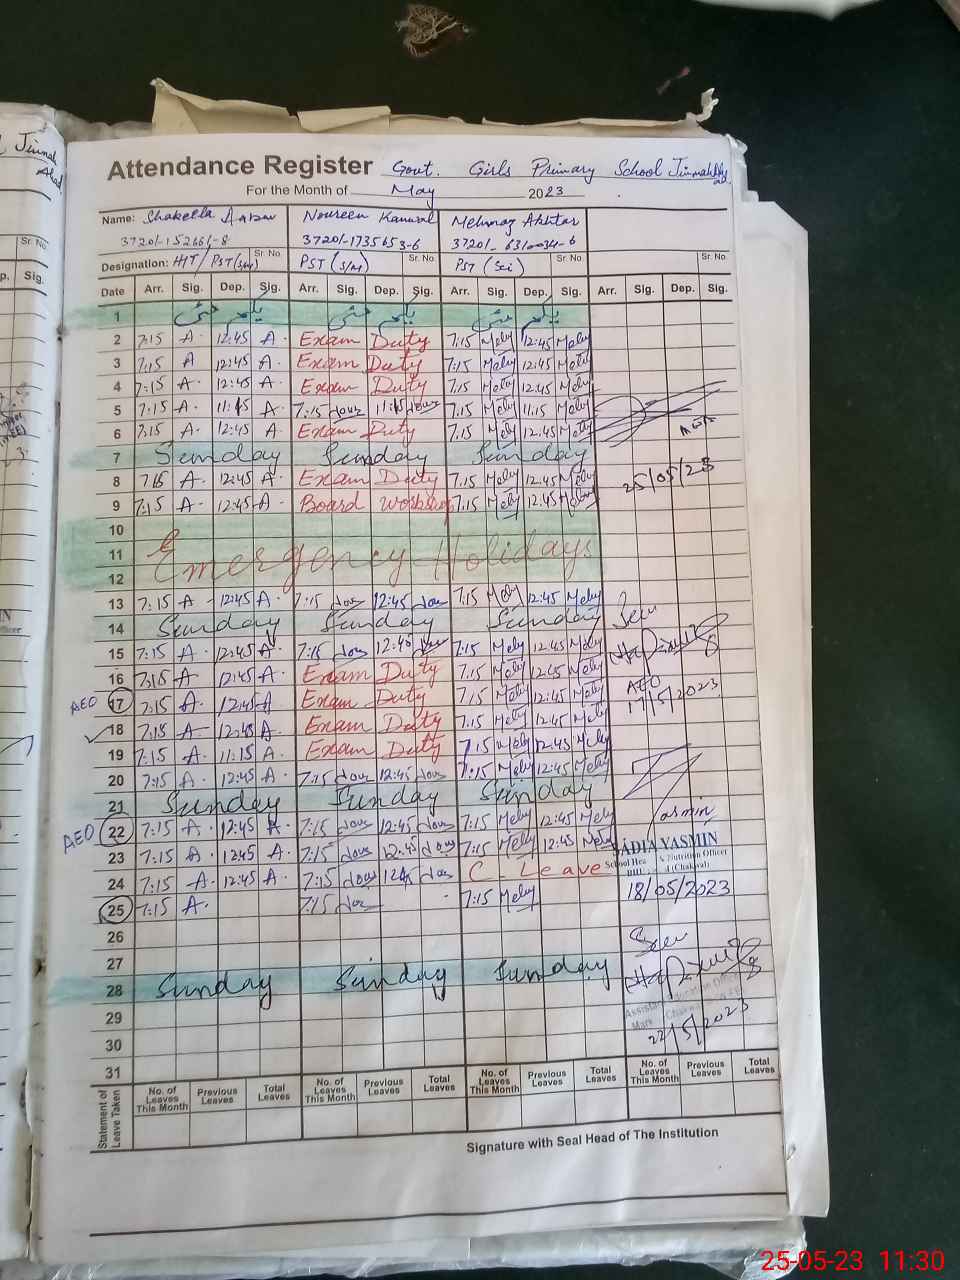 Jinnah
Abad
Attendance Register Govt. Girls Primary School Jinnahabad
For the Month of May 2023
Name: Shakella Noureen Kanwal Mehnaz Akhtar
37201-1735653-6 37201-6310034-6
Designation: HT/PST(S/M) Sr. No. PST (S/M) Sr. No. PST (Sci) Sr. No. Sr. No.
Date Arr. Sig. Dep. Sig. Arr. Sig. Dep. Sig. Arr. Sig. Dep. Sig. Arr. Sig. Dep. Sig.
1 یکم مئی یکم مئی یکم مئی
2 7:15 A. 12:45 A. Exam Duty 7:15 Meh 12:45 Meh
3 7:15 A 12:45 A. Exam Duty 7:15 Meh 12:45 Meh
4 7:15 A. 12:45 A. Exam Duty 7:15 Meh 12:45 Meh
5 7:15 A. 11:15 A. 7:15 11:15 7:15 Meh 11:15 Meh
6 7:15 A. 12:45 A. Exam Duty 7:15 Meh 12:45 Meh
7 Sunday Sunday Sunday
8 7:15 A. 12:45 A. Exam Duty 7:15 Meh 12:45 Meh
25/05/23
9 7:15 A. 12:45 A. Board 7:15 Meh 12:45 Meh
10
11 Emergency Holidays
12
13 7:15 A 12:45 A. 7:15 12:45 7:15 Meh 12:45 Meh
14 Sunday Sunday Sunday Seen
15 7:15 A. 12:45 A 7:15 12:45 7:15 Meh 12:45 Meh
16 7:15 A. 12:45 A. Exam Duty 7:15 Meh 12:45 Meh
AEO 17 7:15 A. 12:45 A. Exam Duty 7:15 Meh 12:45 Meh AEO
17/5/2023
18 7:15 A 12:45 A. Exam Duty 7:15 Meh 12:45 Meh
19 7:15 A. 11:15 A. Exam Duty 7:15 Meh 12:45 Meh
20 7:15 A. 12:45 A. 7:15 12:45 7:15 Meh 12:45 Meh
21 Sunday Sunday Sunday
AEO 22 7:15 A. 12:45 A. 7:15 12:45 7:15 Meh 12:45 Meh
Yasmin
23 7:15 A. 12:45 A. 7:15 12:45 7:15 Meh 12:45 Meh
SADIA YASMIN
School Hea & Nutrition Officer
(Chakwal)
24 7:15 A. 12:45 A. 7:15 12:45 C. Leave
18/05/2023
25 7:15 A. 7:15 7:15 Meh
26
Seen
27
28 Sunday Sunday Sunday
Assistant Education Officer
29
22/5/2023
30
31
Statement of Leave Taken
No. of Leaves This Month Previous Leaves Total Leaves No. of Leaves This Month Previous Leaves Total Leaves No. of Leaves This Month Previous Leaves Total Leaves No. of Leaves This Month Previous Leaves Total Leaves
Signature with Seal Head of The Institution
25-05-23 11:30